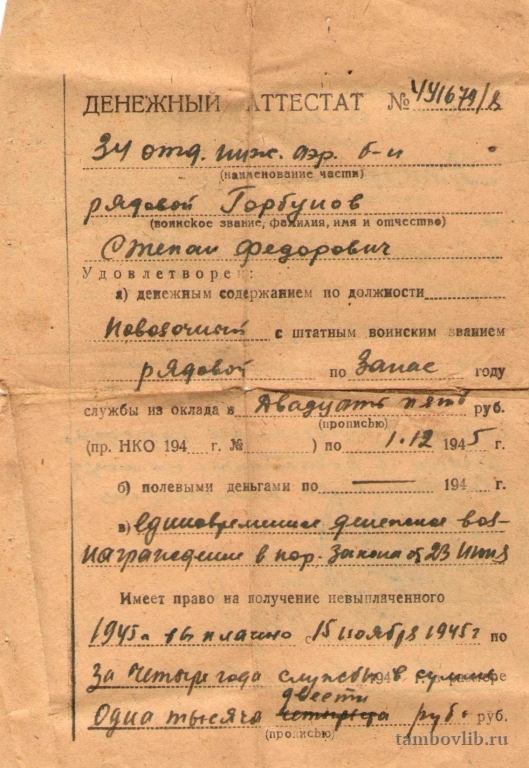 ДЕНЕЖНЫЙ АТТЕСТАТ № 441679/в
34 отд. инж. аэр. б-н
(наименование части)
рядовой Горбунов
(воинское звание, фамилия, имя и отчество)
Степан Федорович
Удовлетворен:
а) денежным содержанием по должности
Повозочный с штатным воинским званием
рядовой по Запас году
службы из оклада в Двадцать пять руб.
(прописью)
(пр. НКО 194 г. № ) по 1.12 1945 г.
б) полевыми деньгами по — 194 г.
в) единовременное денежное воз-
награждение в пор. Закона от 23 июня
Имеет право на получение невыплаченного
1945г выплачено с 15 ноября 1945г по
за четыре года службы 194 в сумме размере
двести
Одна тысяча четыреста руб. руб.
(прописью)
tambovlib.ru